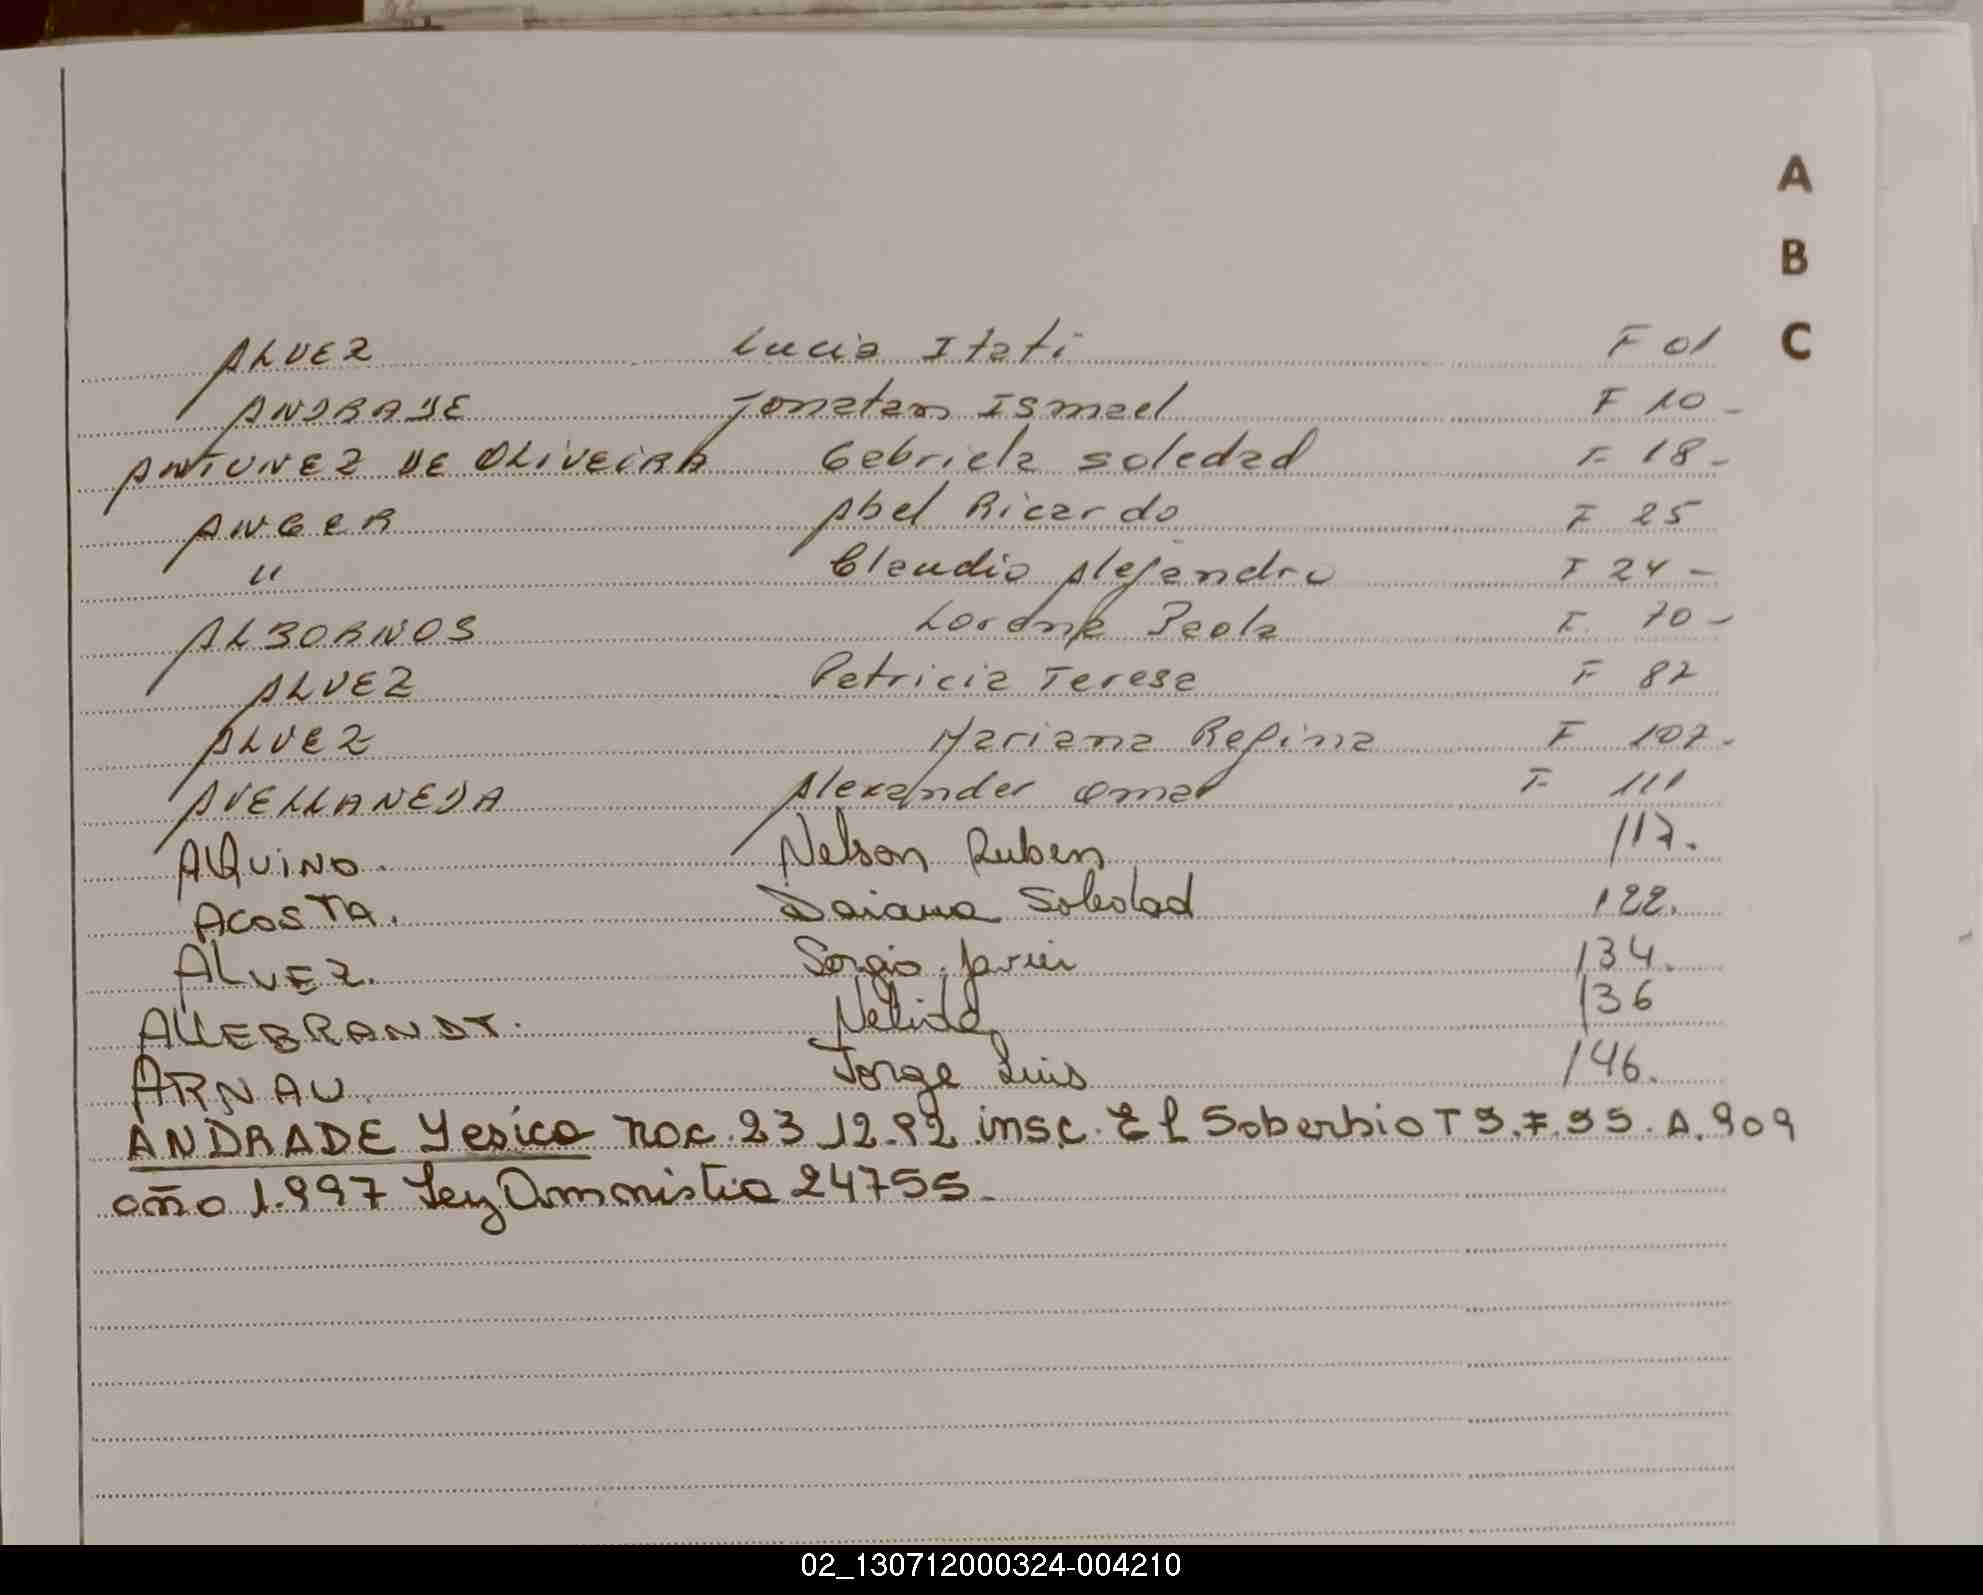 A
B
C
ALVEZ Lucia Itati F 01
ANDRADE Jonatan Ismael F 10 -
ANTUNEZ DE OLIVEIRA Gabriela Soledad F 18 -
ANGER Abel Ricardo F 25
" Claudio Alejandro F 24 -
ALBORNOS Lorena Paola F. 70 -
ALVEZ Patricia Teresa F 82
ALVEZ Mariana Regina F 102 -
AVELLANEDA Alexander Omar F. 111
AQUINO. Nelson Ruben 117.
ACOSTA. Daiana Soledad 122.
ALVEZ. Sergio Javier 134.
ALLEBRANDT. Nelida 136
ARNAU. Jorge Luis 146.
ANDRADE Yesica nac. 23.12.92 insc. El Soberbio T 3. F. 55. A. 909
año 1.997 Ley Amnistia 24755.
02_130712000324-004210